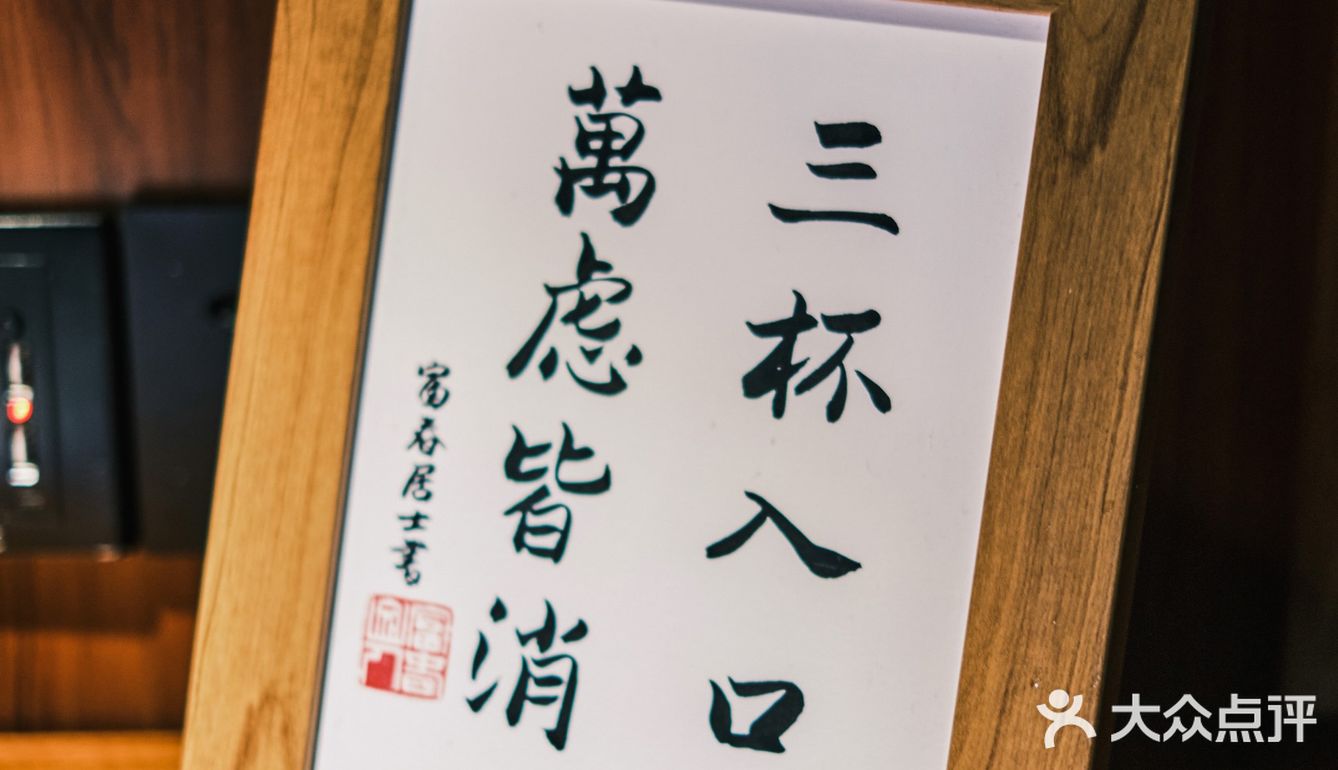 三杯入口
萬虑皆消
富春居士書
大众点评